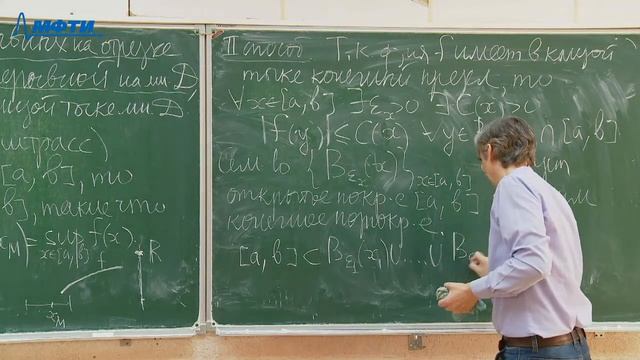 МФТИ
ных на отрезке
ерывной на мн. D,
ждой точке мн. D
штрасс)
[a, b], то
b], такие что
x_M) = sup f(x).
x∈[a,b]
f
R
x_M
II способ Т. к. ф-ия f имеет в каждой
точке конечный предел, то
∀x∈[a, b] ∃ε_x>0 ∃C(x)>0
|f(y)| ≤ C(x) ∀y∈ ∩ [a, b].
{B_{ε_x}(x)}_{x∈[a,b]}
открытое покр-е [a, b]
конечное подпокр-е
[a, b] ⊂ B_{ε_1}(x_1) ∪ .... ∪ B